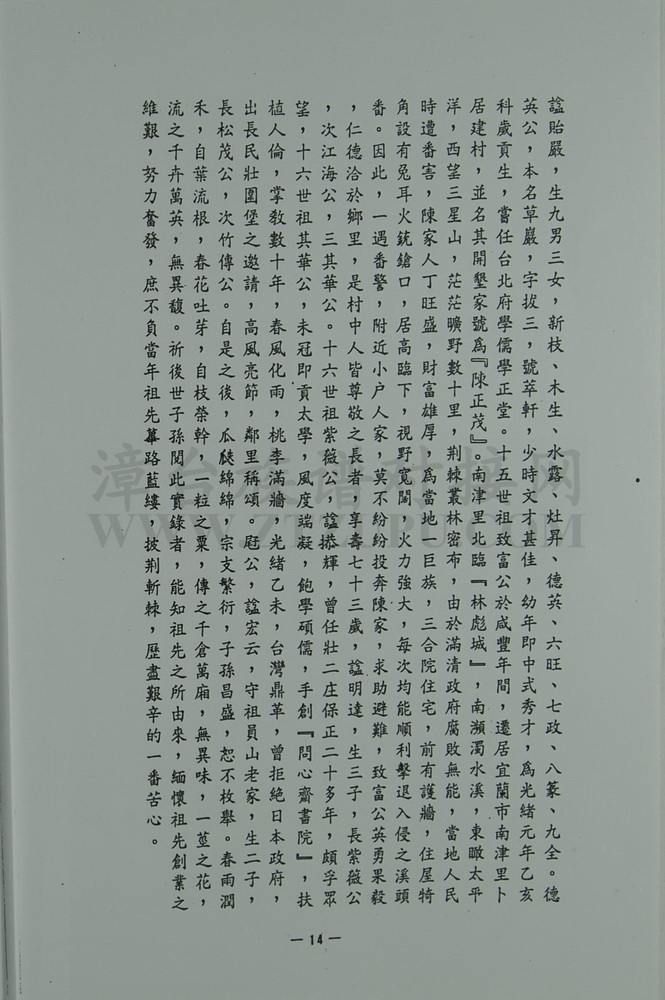 諡貽嚴，生九男三女，新枝、木生、水露、灶昇、德英、六旺、七政、八篆、九全。德
英公，本名草嚴，字拔三，號萃軒，少時文才甚佳，幼年即中式秀才，為光緒元年乙亥
科歲貢生，嘗任台北府學儒學正堂。十五世祖致富公於咸豐年間，遷居宜蘭市南津里卜
居建村，並名其開墾家號為『陳正茂』。南津里北臨『林彪城』，南瀕濁水溪，東瞰太平
洋，西望三星山，茫茫曠野數十里，荆棘叢林密布，由於滿清政府腐敗無能，當地人民
時遭番害，陳家人丁旺盛，財富雄厚，為當地一巨族，三合院住宅，前有護牆，住屋犄
角設有兔耳火銃鎗口，居高臨下，視野寬闊，火力強大，每次均能順利擊退入侵之溪頭
番。因此，一遇番警，附近小户人家，莫不紛紛投奔陳家，求助避難，致富公英勇果毅
，仁德洽於鄉里，是村中人皆尊敬之長者，享壽七十三歲，諡明達，生三子，長紫薇公
，次江海公，三其華公。十六世祖紫薇公，諡搽輝，曾任壯二庄保正二十多年，頗孚眾
望，十六世祖其華公，未冠即貢太學，風度端凝，飽學碩儒，手創『問心齋書院』，扶
植人倫，掌敎數十年，春風化雨，桃李滿牆，光緒乙未，台灣鼎革，曾拒絕日本政府，
出長民壯圍堡之邀請，高風亮節，鄰里稱頌。庭公，諡宏云，守祖員山老家，生二子，
長松茂公，次竹傳公。自是之後，瓜瓞綿綿，宗支繁衍，子孫昌盛，恕不枚舉。春雨潤
禾，自葉流根，春花吐芽，自枝榮幹，一粒之粟，傳之千倉萬廂，無異味，一莖之花，
流之千卉萬英，無異馥。祈後世子孫閱此實錄者，能知祖先之所由來，緬懷祖先創業之
維艱，努力奮發，庶不負當年祖先蓽路藍縷，披荆斬棘，歷盡艱辛的一番苦心。
—14—
WWW.ZTZUPU.COM